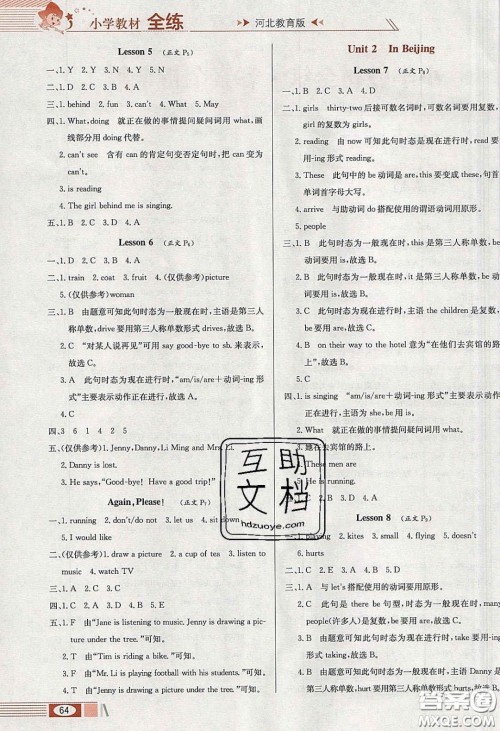 小学教材 全练
河北教育版
Lesson 5 (正文 P₅)
一、1. Y 2. N 3. Y 4. N 5. N
二、1. A 2. A 3. A 4. A 5. C
三、1. behind 2. fun 3. can't 4. What 5. May
四、1. What, doing 就正在做的事情提问疑问词用 what,画线部分用 doing 代替。
2. can't see 含有 can 的肯定句变否定句时,把 can 变为 can't。
3. is reading
4. The girl behind me is singing.
五、1. B 2. C 3. E 4. D 5. A
Lesson 6
一、1. A 2. A 3. C 4. D
二、1. train 2. coat 3. fruit 4. (仅供参考) picture
5. (仅供参考) woman
三、1. B 由题意可知此句时态为一般现在时,主语是第三人称单数,drive 要用第三人称单数形式 drives,故选 B。
2. C “对某人说再见”可用 say good-bye to sb. 来表示,故选 C。
3. A 此句时态为现在进行时,“am/is/are+动词-ing 形式”主要表示动作正在进行,故选 A。
4. C
四、3 6 1 4 2 5
五、(仅供参考) 1. Jenny, Danny, Li Ming and Mrs. Li.
2. Danny is lost.
3. He says, “Good-bye! Have a good trip!”
Again, Please!
一、1. running 2. don't/do not 3. out 4. sitting
5. I would like
二、(仅供参考) 1. draw a picture 2. a cup of tea 3. listen to music 4. watch TV
三、1. A 2. C 3. C 4. C
四、1. C 2. D 3. A 4. B
五、1. F 由“Jane is listening to music. Jenny is drawing a picture under the tree.”可知。
2. T 由“Tim is riding a bike.”可知。
3. T 由“Mr. Li is playing football with his students.”可知。
4. T 由“Jenny is drawing a picture under the tree.”可知。
64
Unit 2 In Beijing
Lesson 7
一、1. C 2. A 3. C 4. B
二、1. girls thirty-two 后接可数名词时,可数名词要用复数,故填 girls。
2. reading 由 now 可知此句时态是现在进行时,故 read 要用-ing 形式 reading。
3. These 此句中的 be 动词是 are, this 要变成复数,句首单词首字母大写。
4. arrive 与助动词 do 搭配使用的谓语动词用原形。
5. people
三、1. B 此句时态为一般现在时,主语是第三人称单数,be 动词要用 is,故选 B。
2. B 此句时态为一般现在时,it 是第三人称单数,be 动词要用 is,故选 B。
3. C 此句时态为现在进行时,主语 the children 是复数,be 动词要用 are,故选 C。
4. B on their way to the hotel 意为“在他们去宾馆的路上”,故选 B。
四、1. is singing 此句时态为现在进行时,“am/is/are+动词-ing 形式”主要表示动作正在进行。
2. What 就正在做的事情提问疑问词用 what。
3. 她在去宾馆的路上。
4. These men are
5. is reading
五、1. C 2. A 3. B 4. D
Lesson 8
flying 3. playing 4. small 5. doing
6. hurts
二、1. C 2. B 3. B 4. A
三、1. A 与 let's 搭配使用的动词要用原形。
2. C 此句是 there be 句型,动词要用-ing 形式。
3. A people 是集体名词,表示复数概念,many people(许多人)是复数,be 动词要用 are。
4. C 此句时态为现在进行时,take 要用-ing 形式 taking,故选 C。
5. B 此句时态为一般现在时,主语 Danny 是第三人称单数,hurt 要用第三人称单数形式 hurts,故选 B。
互助文档
hdzuoye.com
答案圈
MXQE.COM